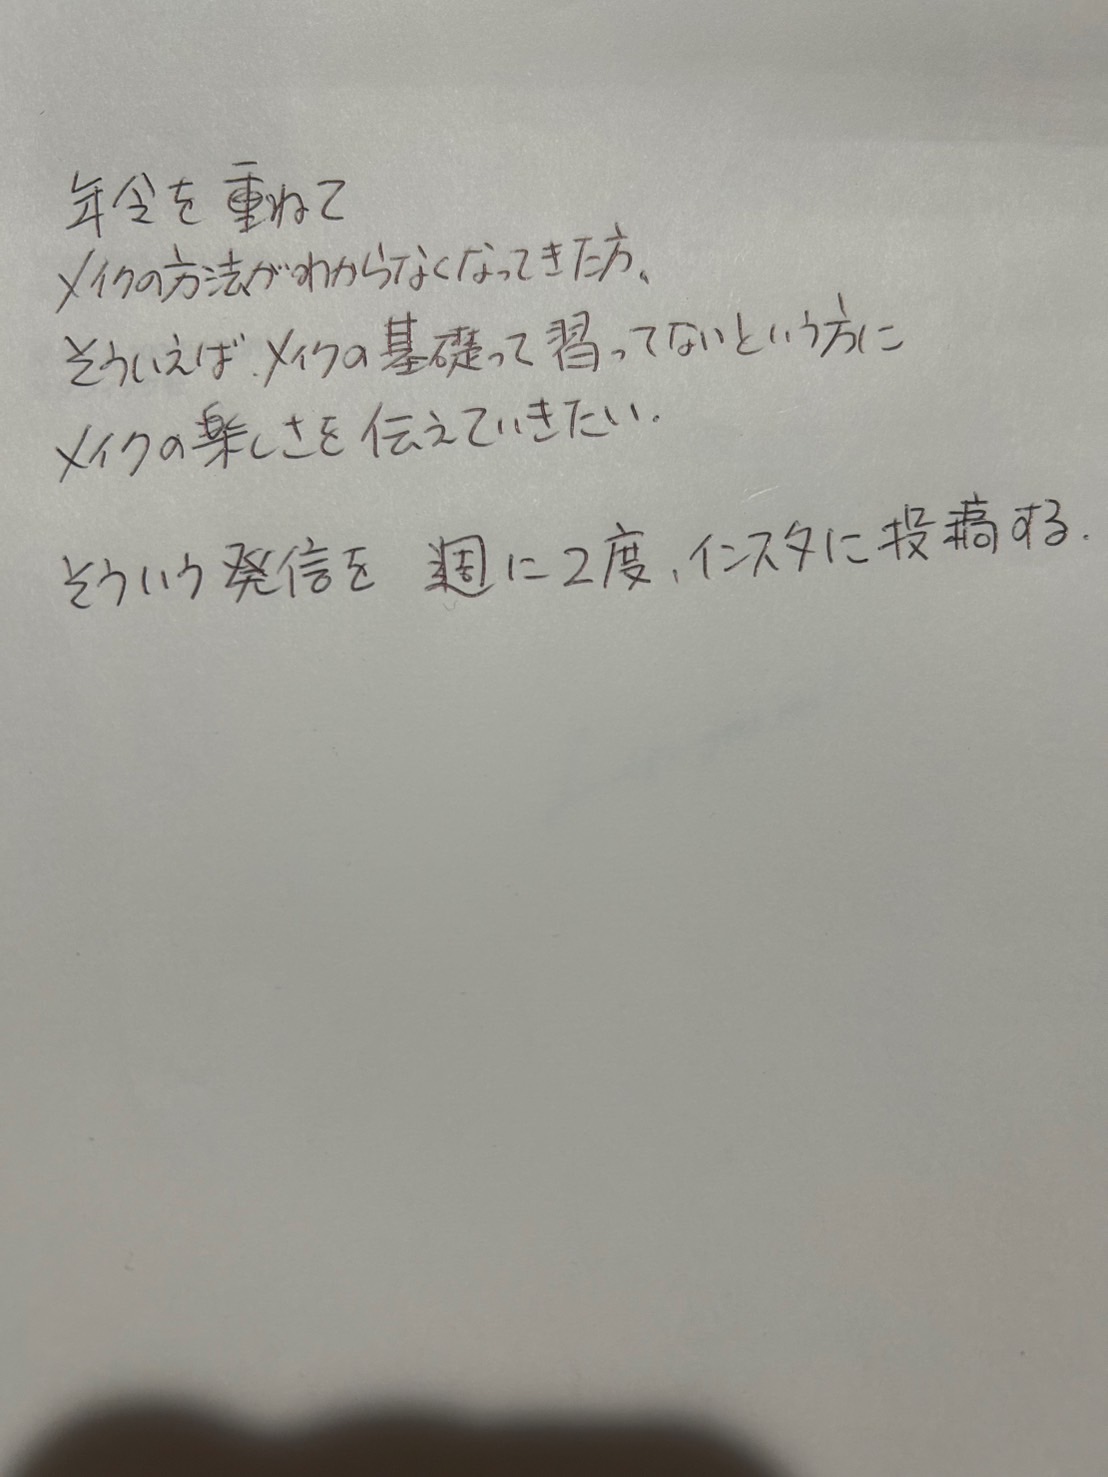 年令を重ねて
メイクの方法がわからなくなってきた方、
そういえば、メイクの基礎って習ってないという方に
メイクの楽しさを伝えていきたい。
そういう発信を 週に2度、インスタに投稿する。